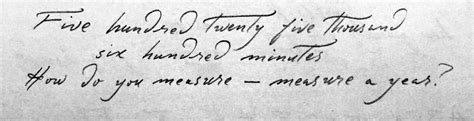 Five hundred twenty five thousand
six hundred minutes
How do you measure – measure a year?